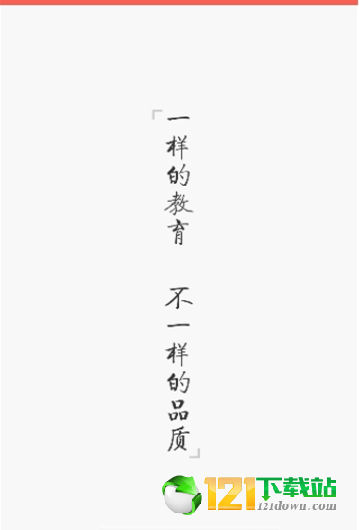 「一样的教育 不一样的品质」
121下载站
121down.com